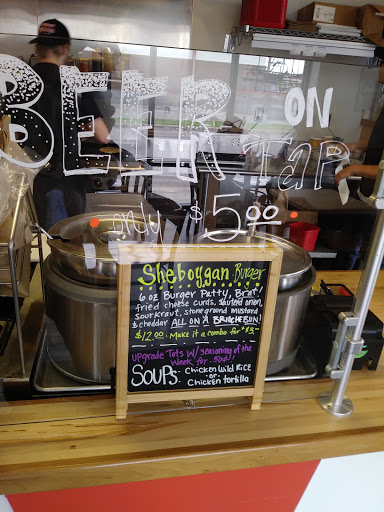 BEER ON
TAP
only $5.00
Sheboygan Burger
6 oz Burger Patty, Brat,
fried cheese curds, sauteed onion,
Sourkraut, stoneground mustard
& cheddar ALL ON A BRIOCHE BUN!
$12.00. Make it a combo for $3
Upgrade Tots w/ seasoning of the
week for .50¢!!
SOUPS: Chicken Wild Rice
or
Chicken tortilla